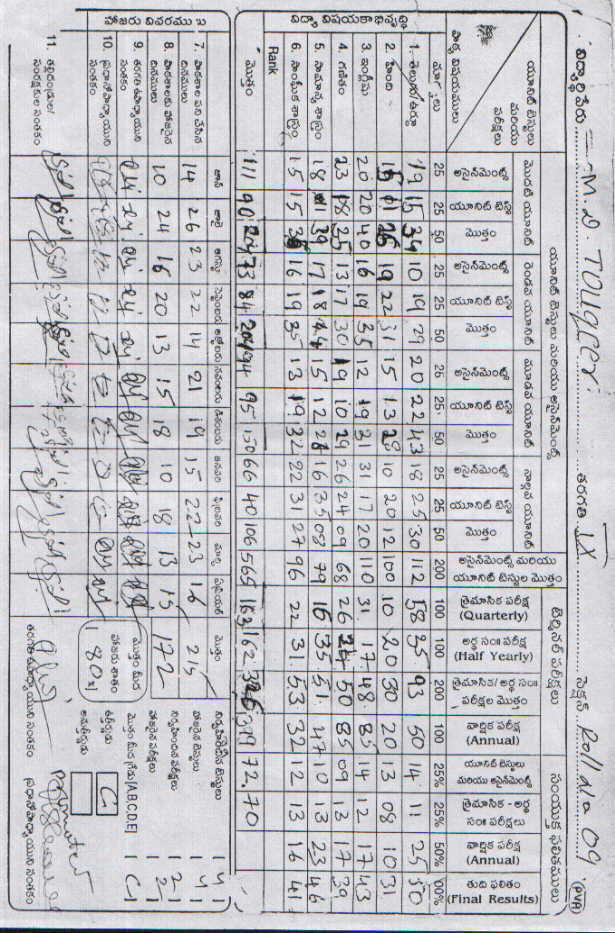 విద్యార్థి పేరు M.D. TOUqeer తరగతి IX సెక్షన్ Roll No 09
(PVA)
యూనిట్ టెస్టులు మరియు పరీక్షలు
యూనిట్ టెస్టులు మరియు అసైన్‌మెంట్స్ టెర్మినల్ పరీక్షలు సంయుక్త ఫలితములు
మొదటి యూనిట్ రెండవ యూనిట్ మూడవ యూనిట్ నాల్గవ యూనిట్
పాఠ్య విషయములు అసైన్‌మెంట్స్ యూనిట్ టెస్ట్ మొత్తం అసైన్‌మెంట్స్ యూనిట్ టెస్ట్ మొత్తం అసైన్‌మెంట్స్ యూనిట్ టెస్ట్ మొత్తం అసైన్‌మెంట్స్ యూనిట్ టెస్ట్ మొత్తం అసైన్‌మెంట్స్ మరియు యూనిట్ టెస్టుల మొత్తం త్రైమాసిక పరీక్ష (Quarterly) అర్థ సం॥ పరీక్ష (Half Yearly) త్రైమాసిక/అర్థ సం॥ పరీక్షల మొత్తం వార్షిక పరీక్ష (Annual) యూనిట్ టెస్టులు మరియు అసైన్‌మెంట్స్ త్రైమాసిక - అర్థ సం॥ పరీక్షలు వార్షిక పరీక్ష (Annual) తుది ఫలితం (Final Results)
మార్కులు 25 25 50 25 25 50 25 25 50 25 25 50 200 100 100 200 100 25% 25% 50% 100%
విద్యా విషయకాభివృద్ధి
1. తెలుగు/ఉర్దూ 19 15 34 10 19 29 20 22 43 18 25 30 112 58 25 93 50 11 14 25 50
2. హింది 15 11 26 19 22 31 15 13 28 10 20 12 100 10 20 30 20 13 08 10 31
3. ఇంగ్లీషు 20 20 40 16 19 35 12 19 31 31 17 20 110 31 17 48 85 14 12 17 43
4. గణితం 23 18 25 13 17 30 19 10 29 26 24 09 68 26 24 50 85 09 13 17 39
5. సామాన్య శాస్త్రం 18 11 39 17 18 44 15 12 28 16 35 08 79 16 35 51 47 10 13 23 46
6. సాంఘిక శాస్త్రం 15 15 36 16 19 35 13 19 32 22 31 27 96 22 31 53 32 12 13 16 41
Rank
మొత్తం 111 90 73 84 204 94 95 150 66 40 106 565 163 162 325 319 72 70
హాజరు వివరములు
జూన్ జూలై ఆగస్టు సెప్టెంబరు అక్టోబరు నవంబరు డిసెంబరు జనవరి ఫిబ్రవరి మార్చి ఏప్రియల్ మొత్తం
7. పాఠశాల పని చేసిన దినములు 14 26 23 22 14 21 19 15 22 23 16 215
8. పాఠశాలకు హాజరైన దినములు 10 24 16 20 13 15 18 10 18 13 15 172
9. తరగతి ఉపాధ్యాయుని సంతకం
10. ప్రధానోపాధ్యాయుని సంతకం
11. తల్లిదండ్రుల/ సంరక్షకుల సంతకం
మొత్తం మీద హాజరు శాతం 80%
నిర్వహించిన టెస్టులు 4
హాజరైన టెస్టులు 4
నిర్వహించిన పరీక్షలు 2
హాజరైన పరీక్షలు 2
మొత్తం మీద గ్రేడు (A,B,C,D,E) C
ఉత్తీర్ణుడు
అనుత్తీర్ణుడు
తరగతి ఉపాధ్యాయుని సంతకం ప్రధానోపాధ్యాయుని సంతకం